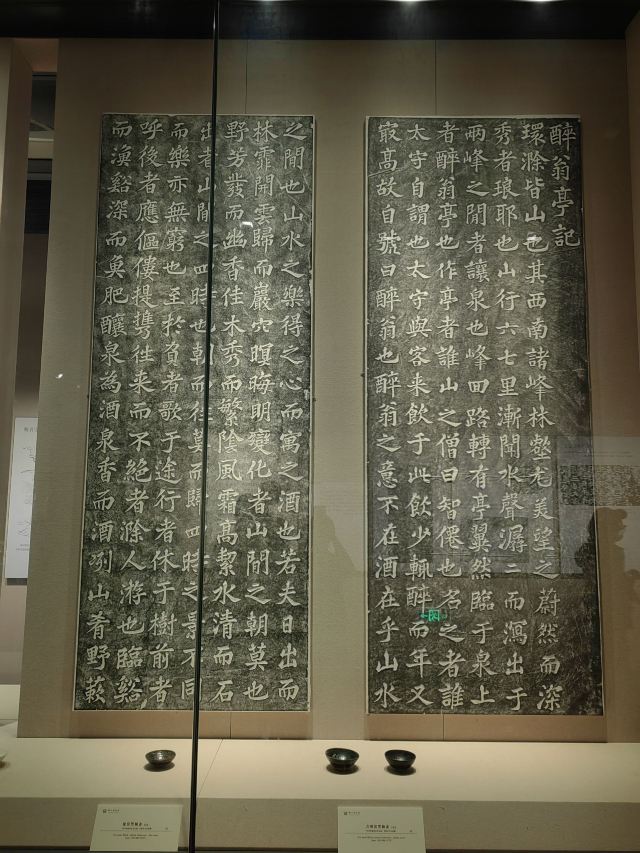 醉翁亭記
環滁皆山也其西南諸峰林壑尤美望之蔚然而深
秀者琅耶也山行六七里漸聞水聲潺二而瀉出于
兩峰之閒者讓泉也峰回路轉有亭翼然臨于泉上
者醉翁亭也作亭者誰山之僧曰智僊也名之者誰
太守自謂也太守與客来飲于此飲少輒醉而年又
最高故自號曰醉翁也醉翁之意不在酒在乎山水
之閒也山水之樂得之心而寓之酒也若夫日出而
林霏開雲歸而巖穴暝晦明變化者山閒之朝莫也
野芳發而幽香佳木秀而繁陰風霜高絜水清而石
出者山閒之四時也朝而往莫而歸四時之景不同
而樂亦無窮也至於負者歌于途行者休于樹前者
呼後者應傴僂提攜往来而不絕者滁人游也臨谿
而漁谿深而魚肥釀泉為酒泉香而酒冽山肴野蔌